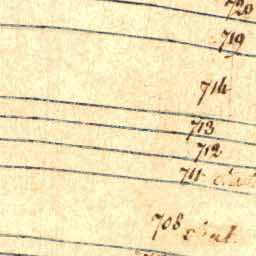 720
719
714
713
712
711
708